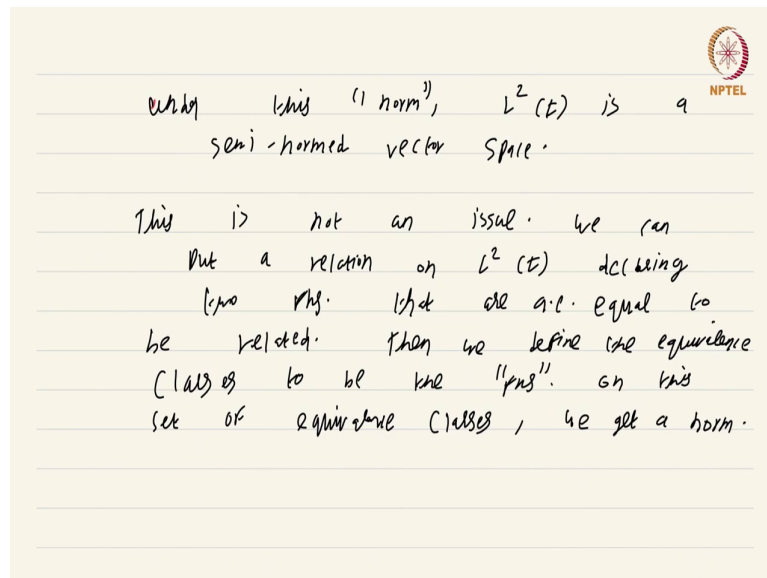 NPTEL
under this "norm", L² (E) is a
semi-normed vector space.
This is not an issue. We can
put a relation on L² (E) declaring
two fns. that are a.e. equal to
be related. Then we define the equivalence
classes to be the "fns". On this
set of equivalence classes, we get a norm.